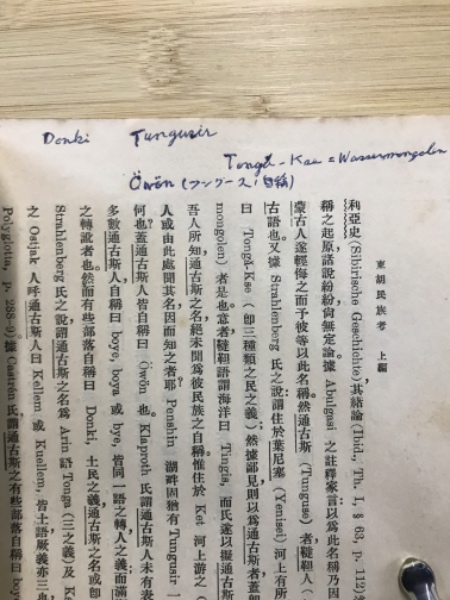 Donki Tungusir
Tongā-Kae = Wassermongolen
Öwön (ツングース/自稱)
東胡民族考 上編
利亞史 (Sibirische Geschichte) 其緒論 (Ibid., Th. I, § 63, p. 112)
稱之起原,話說紛紛,尙無定論。據 Abulgasi 之註釋家言,以爲此名乃因
蒙古人遂輕侮之而予彼等以此名稱。然通古斯 (Tunguse) 者,韃靼人
古語也。又據 Strahlenberg 氏之說,謂住於葉尼塞 (Yenisei) 河上有所
曰 Tongā-Kse (卽三種類之民之義);然據鄙見,則以爲通古斯者,蓋卽
mongolen) 者是也。意者,韃靼語謂海洋曰 Tingis, 而氏遂以擬通古斯
吾人所知,通古斯之名,絕未聞爲彼民族之自稱。惟住於 Ket 河上游之
人或由此處聞其名,因而知之者耶? Penshin 湖畔固猶有 Tungusir
何也?蓋通古斯人皆自稱曰 Öwön 也。Klaproth 氏謂通古斯人未有表
多數通古斯人自稱曰 boye, boya 或 bye, 皆同一語之轉,人之義,而滿
之轉說者也。然而有些部落自稱曰 Donki, 土民之義,通古斯之名或卽
Strahlenberg 氏之說,謂通古斯之名爲 Arin 語 Tonga (三之義) 及
之 Ostjak 人呼通古斯人曰 Kellem 或 Kuellem, 皆土語,厥義亦三
Polyglotta, p. 288-9)。據 Castrén 氏謂,通古斯之有些部落自稱曰